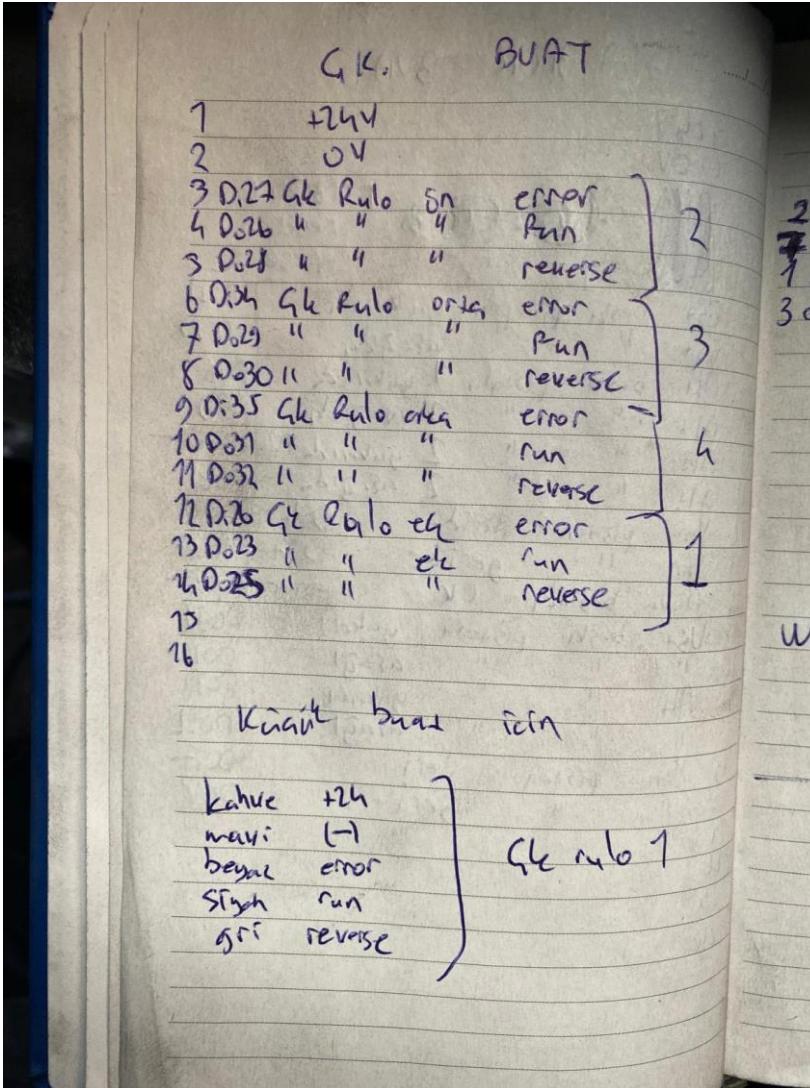 GK. BUAT
1 +24V
2 0V
3 Di27 Gk Rulo ön error
4 Do26 " " " Run
5 Do28 " " " reverse
2
6 Di34 Gk Rulo orta error
7 Do29 " " " Run
8 Do30 " " " reverse
3
9 Di35 Gk Rulo arka error
10 Do31 " " " run
11 Do32 " " " reverse
4
12 Di26 Gk Rulo ek error
13 Do23 " " ek run
14 Do25 " " " reverse
1
15
16
Küçük buat için
kahve +24
mavi (-)
beyaz error
siyah run
gri reverse
Gk rulo 1
2
1
3
W